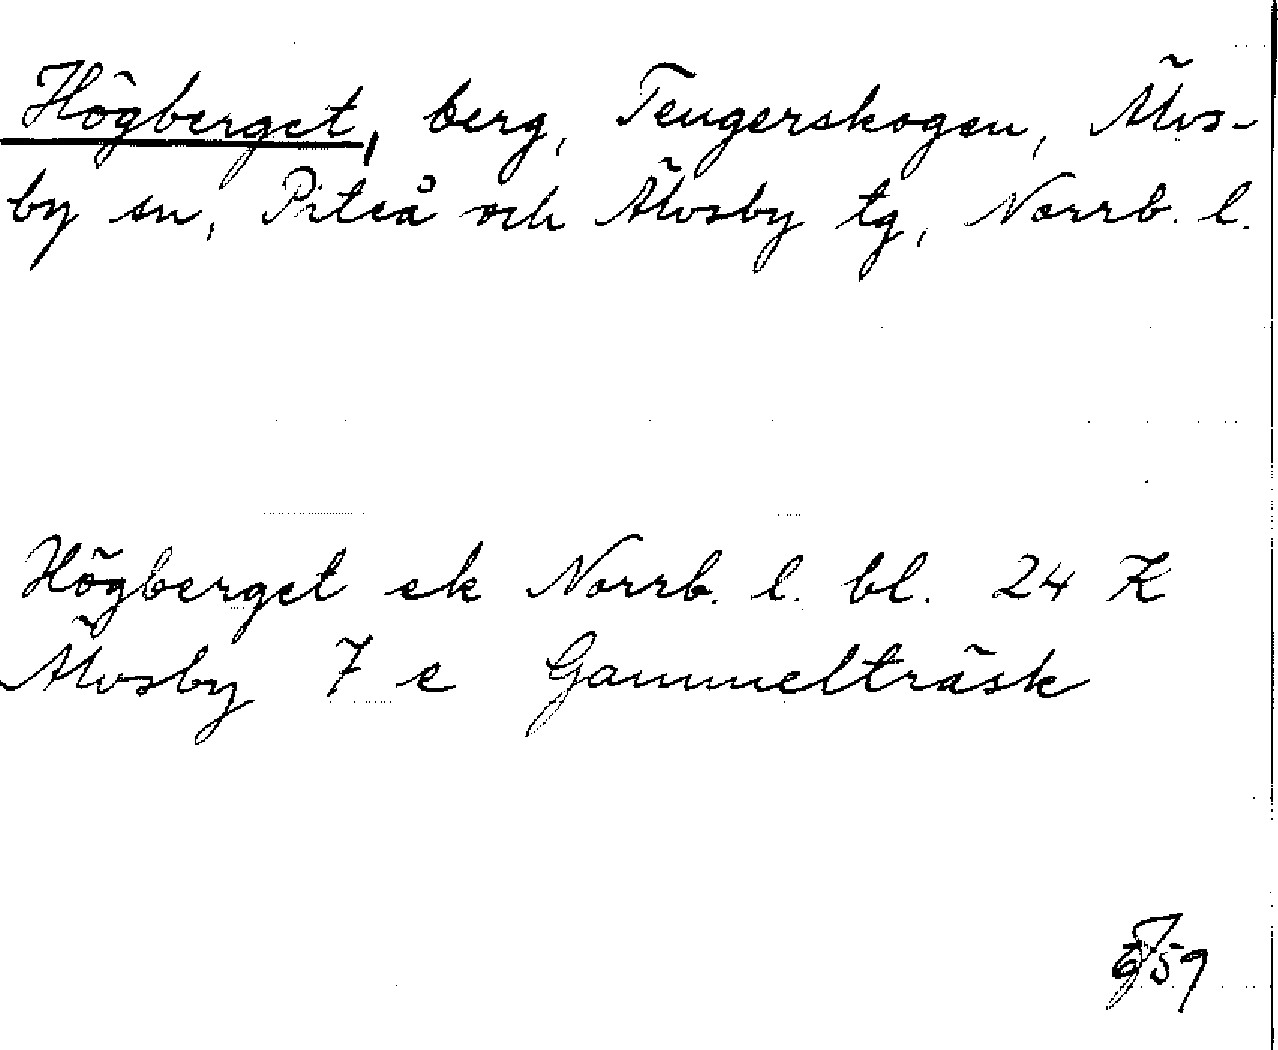 Högberget, berg, Tengerskogen, Älvs-
by sn, Piteå och Älvsby tg, Norrb. l.
Högberget ek Norrb. l. bl. 24 K
Älvsby 7 e Gammelträsk